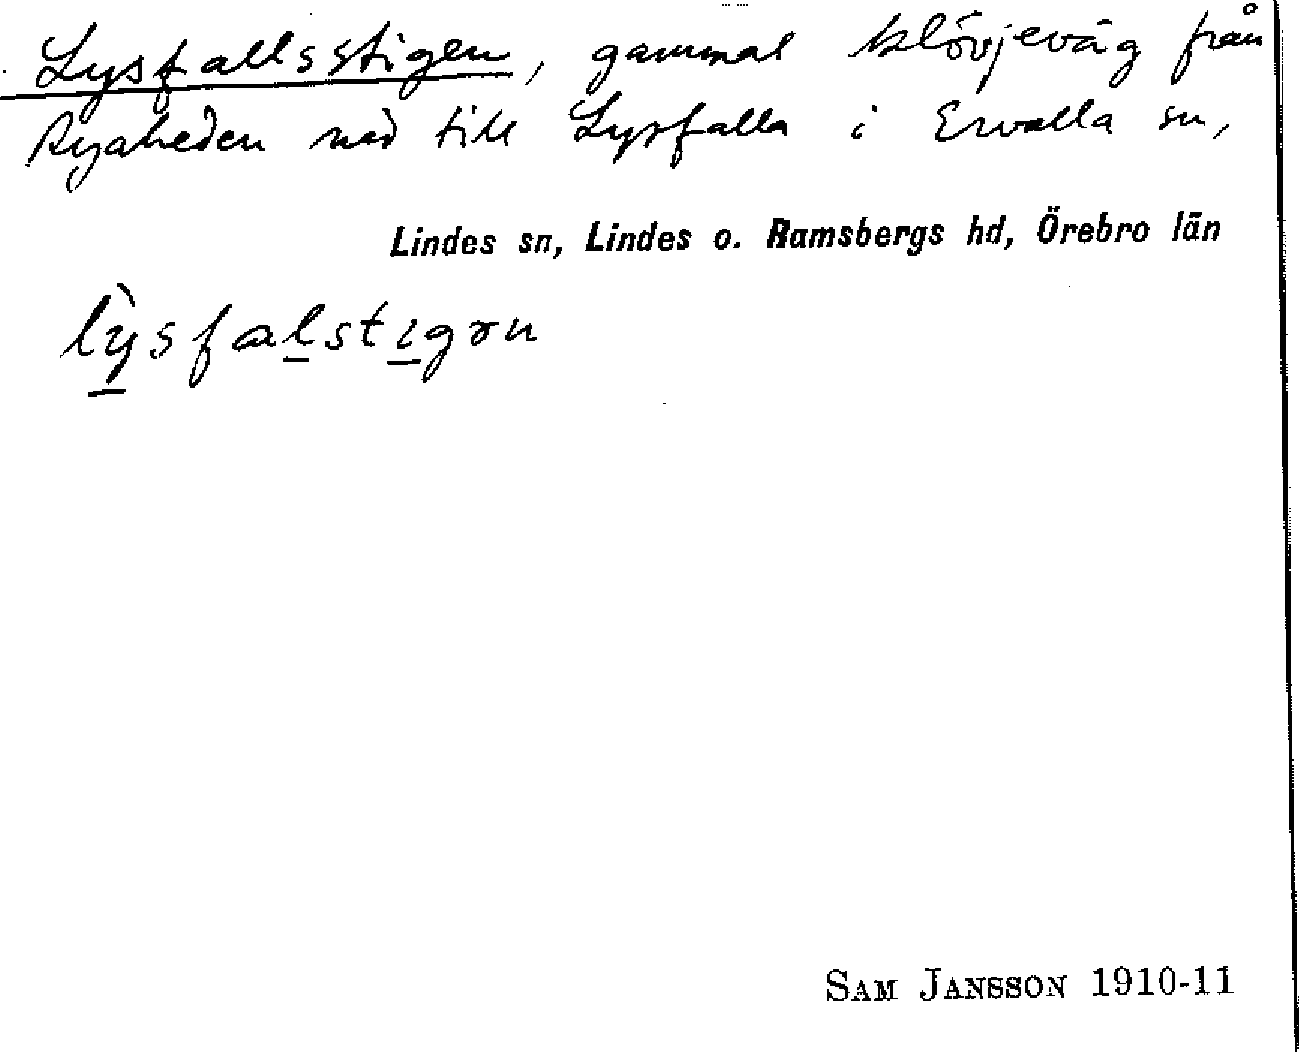 Lysfallsstigen, gammal klövjeväg från
Ryaheden ned till Lysfalla i Ervalla sn,
Lindes sn, Lindes o. Ramsbergs hd, Örebro län
lỳsfalstigən
SAM JANSSON 1910-11